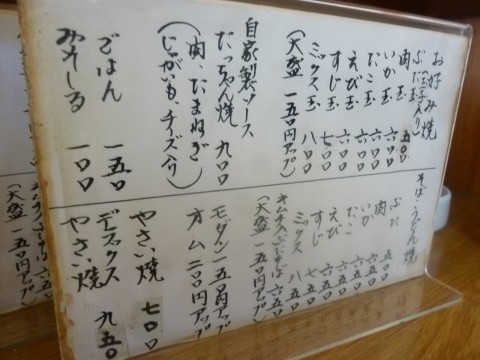 お好み焼
ぶた玉(玉子入り) 五〇〇
肉玉 六〇〇
いか玉 六〇〇
たこ玉 六〇〇
えび玉 六〇〇
すじ玉 七〇〇
ミックス玉 八〇〇
(大盛 一五〇円アップ)
自家製ソース
たっちゃん焼 九〇〇
(肉、たまねぎ
じゃがいも、チーズ入り)
ごはん 一五〇
みそしる 一〇〇
そば・うどん焼
ぶた 五五〇
肉 六五〇
いか 六五〇
たこ 六五〇
えび 六五〇
すじ 七五〇
ミックス 八五〇
キムチ入 六五〇
(大盛 一五〇円アップ)
モダン 一五〇円アップ
オム 二〇〇円アップ
やさい焼 七〇〇
デラックス
やさい焼 九五〇